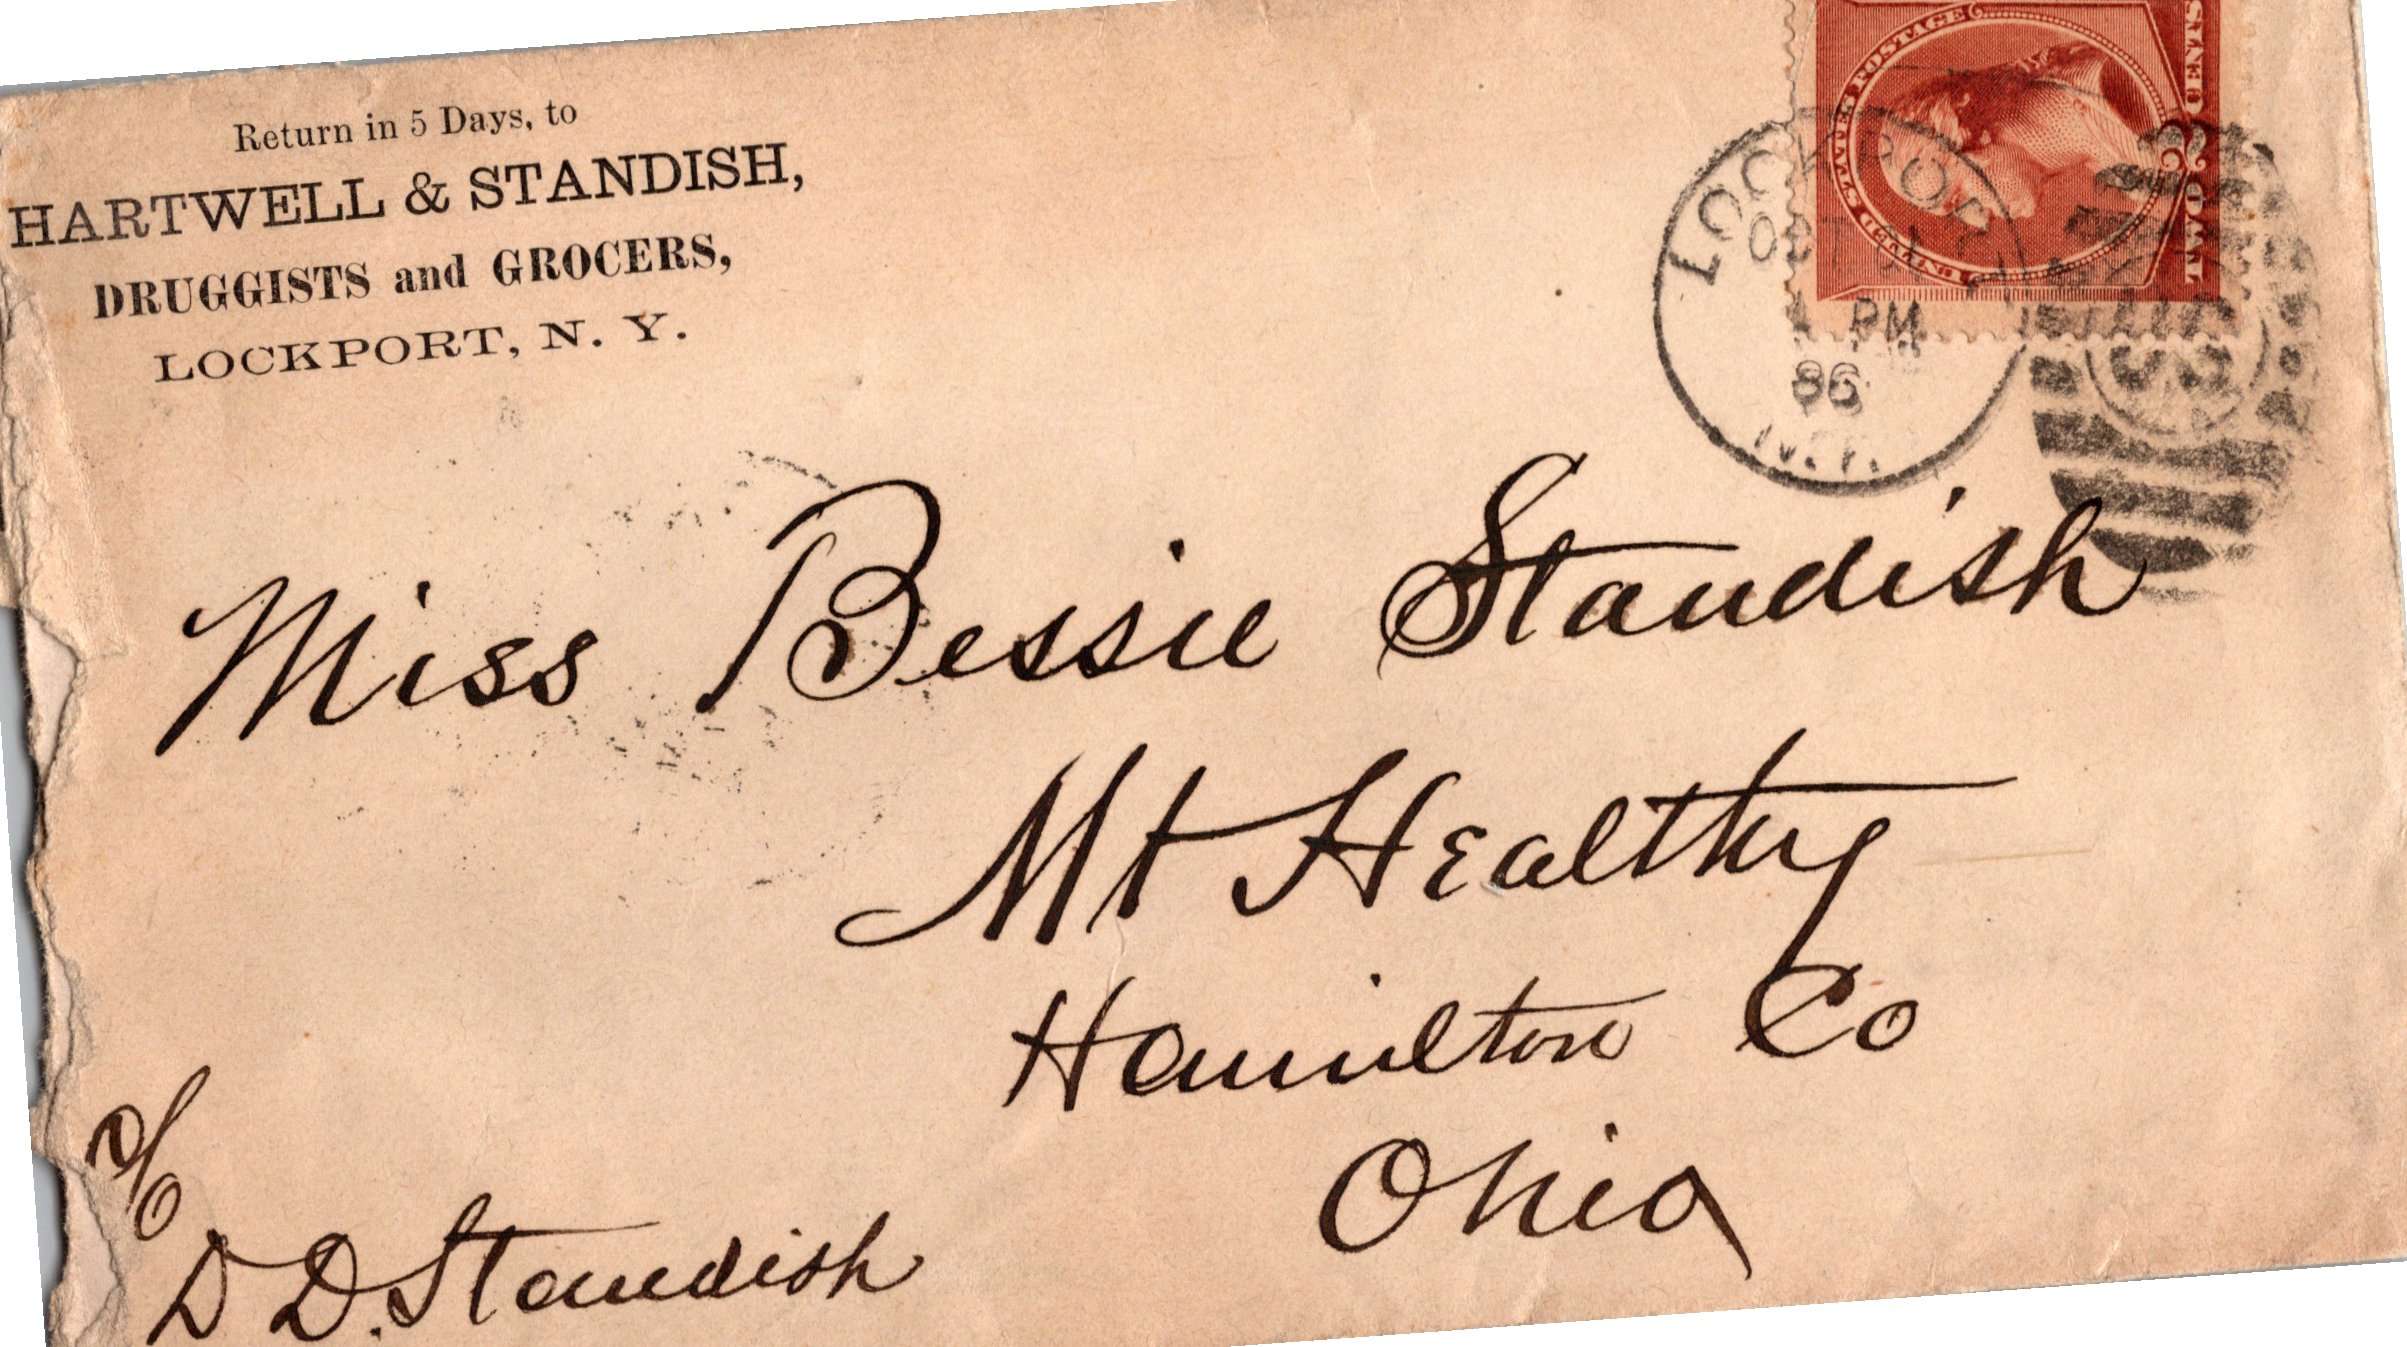 Return in 5 Days, to
HARTWELL & STANDISH,
DRUGGISTS and GROCERS,
LOCKPORT, N. Y.
UNITED STATES POSTAGE
LOCKPORT
OCT
PM
86
N.Y.
Miss Bessie Standish
Mt Healthy
Hamilton Co
Ohio
c/o
D D. Standish